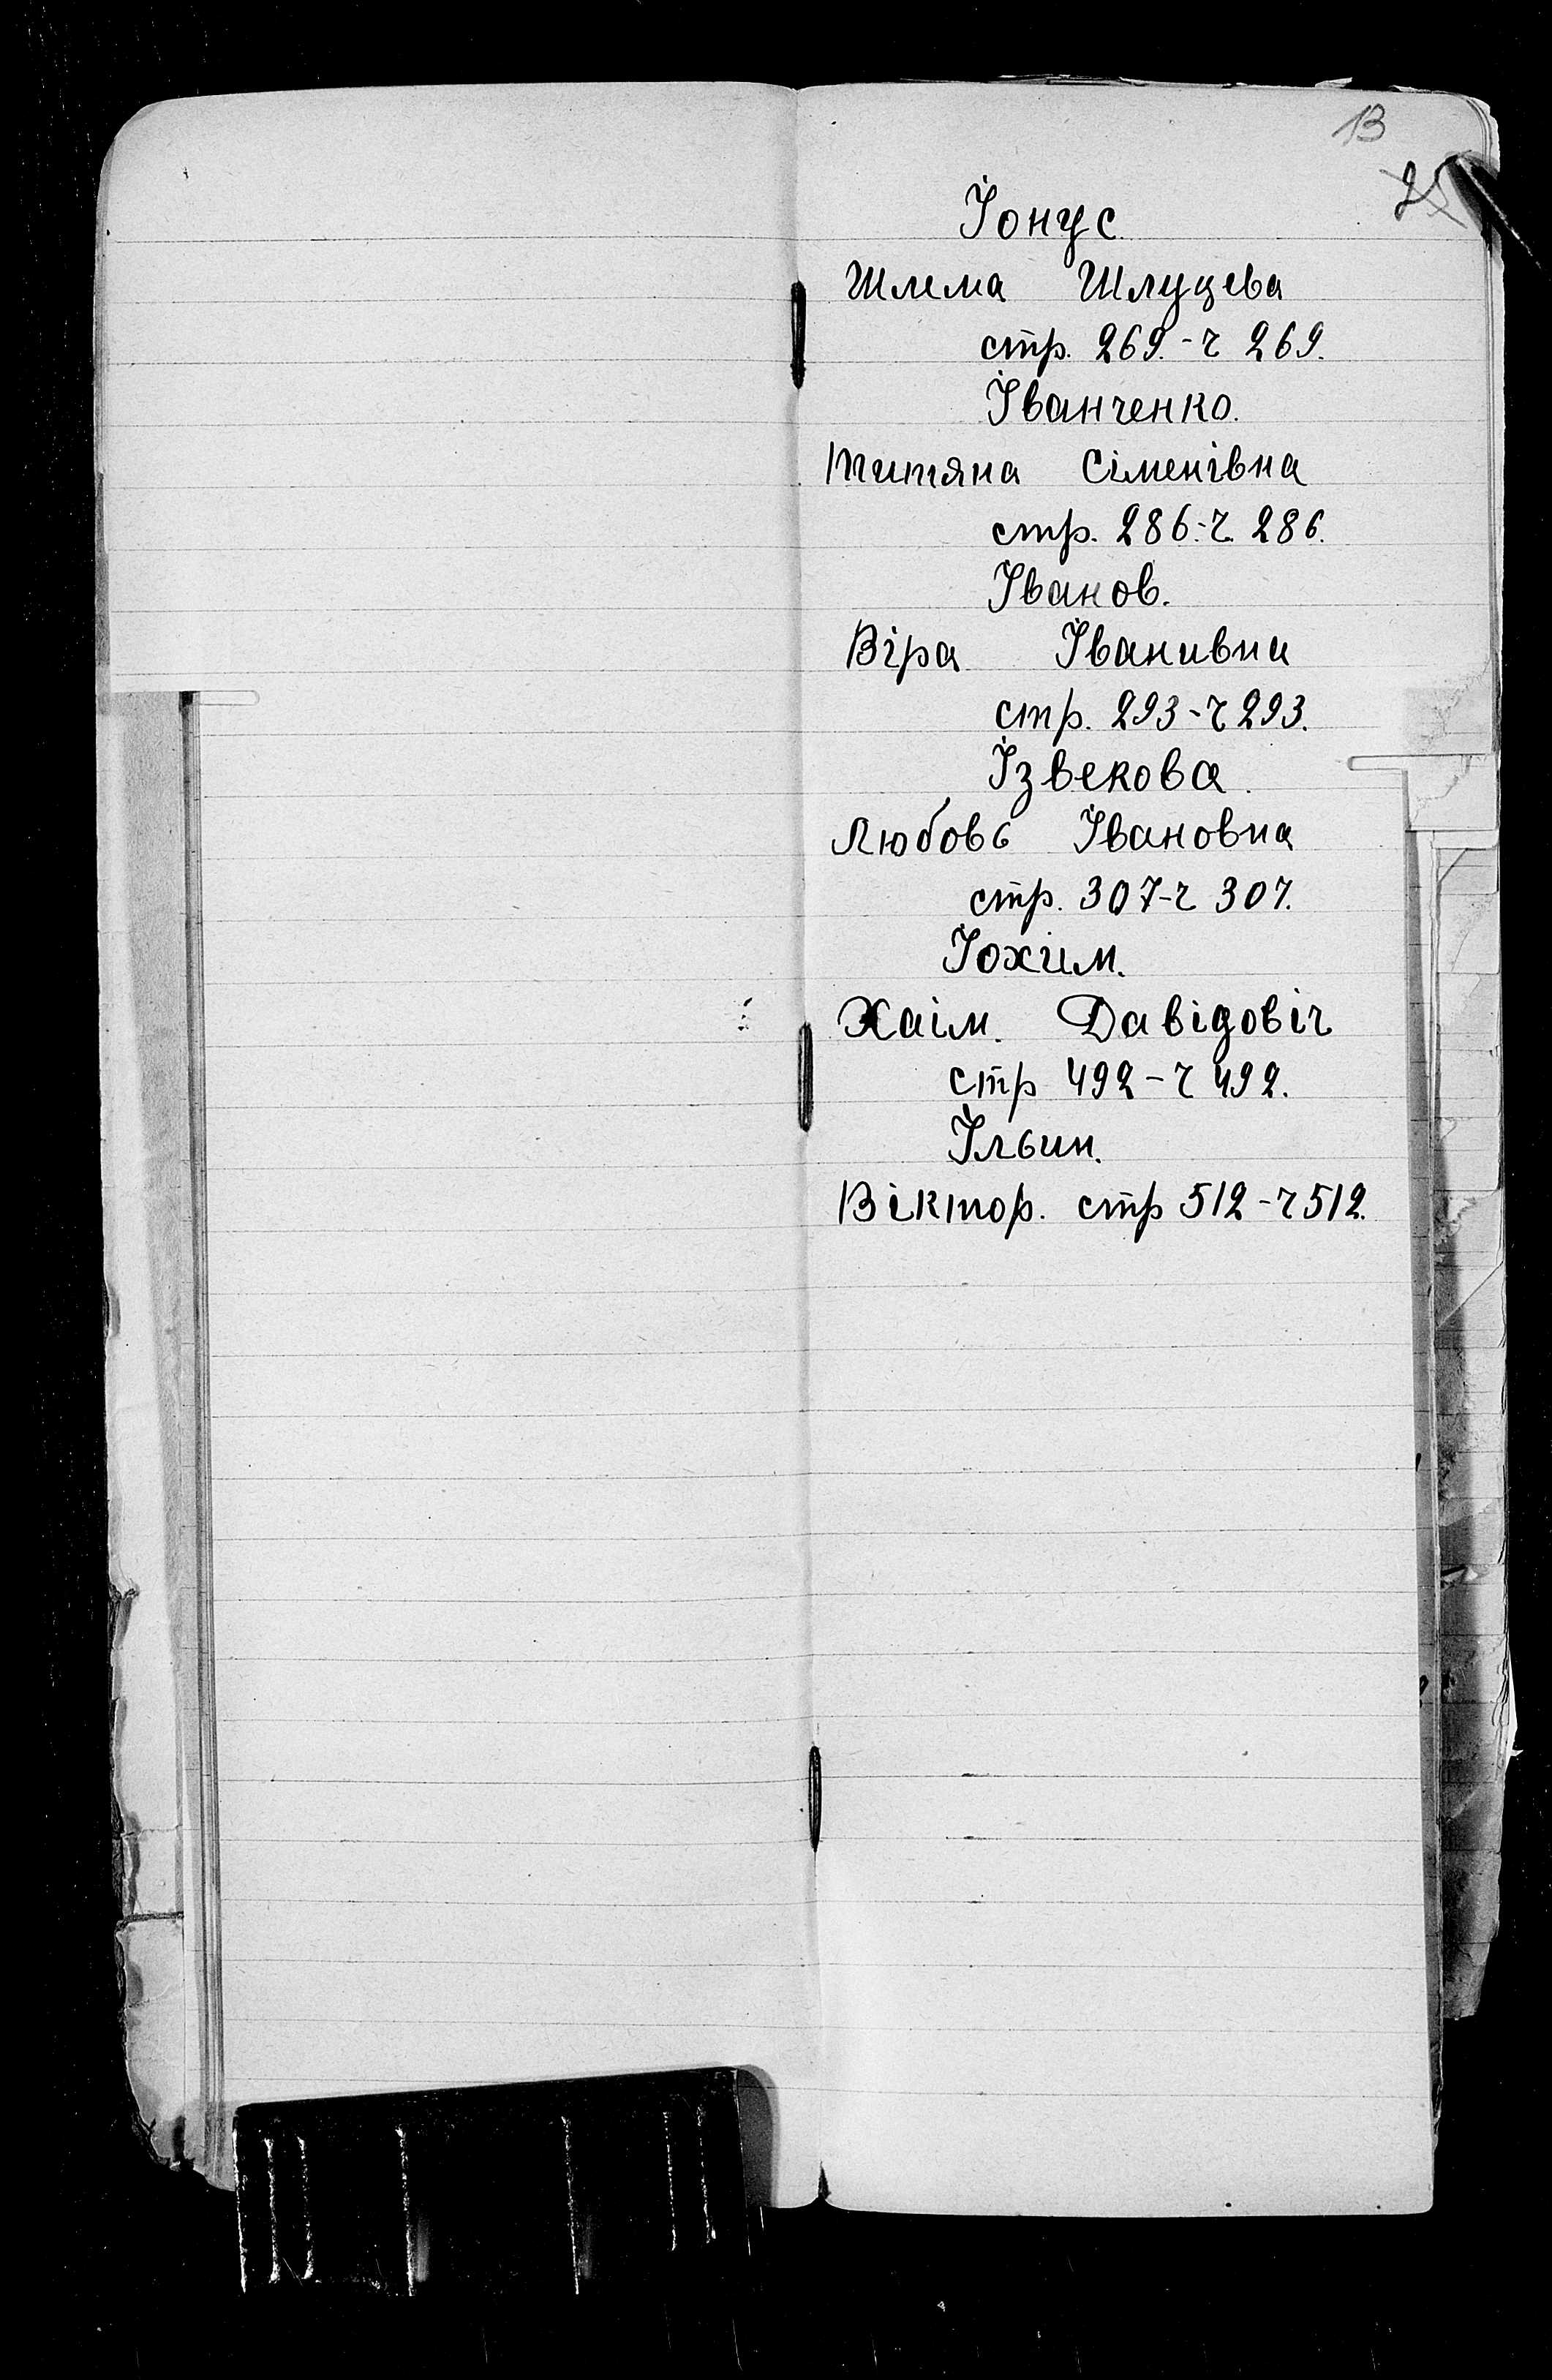 13
Іонус
Шлема Шлуцева
стр. 269.-ч 269.
Іванченко.
Титяна Сіменівна
стр. 286.-ч. 286.
Іванов.
Віра Іванивна
стр. 293-ч 293.
Ізвекова.
Любовь Івановна
стр. 307-ч 307.
Іохим.
Хаім. Давідовіч
стр 492-ч 492.
Ільин.
Віктор. стр 512-ч 512.